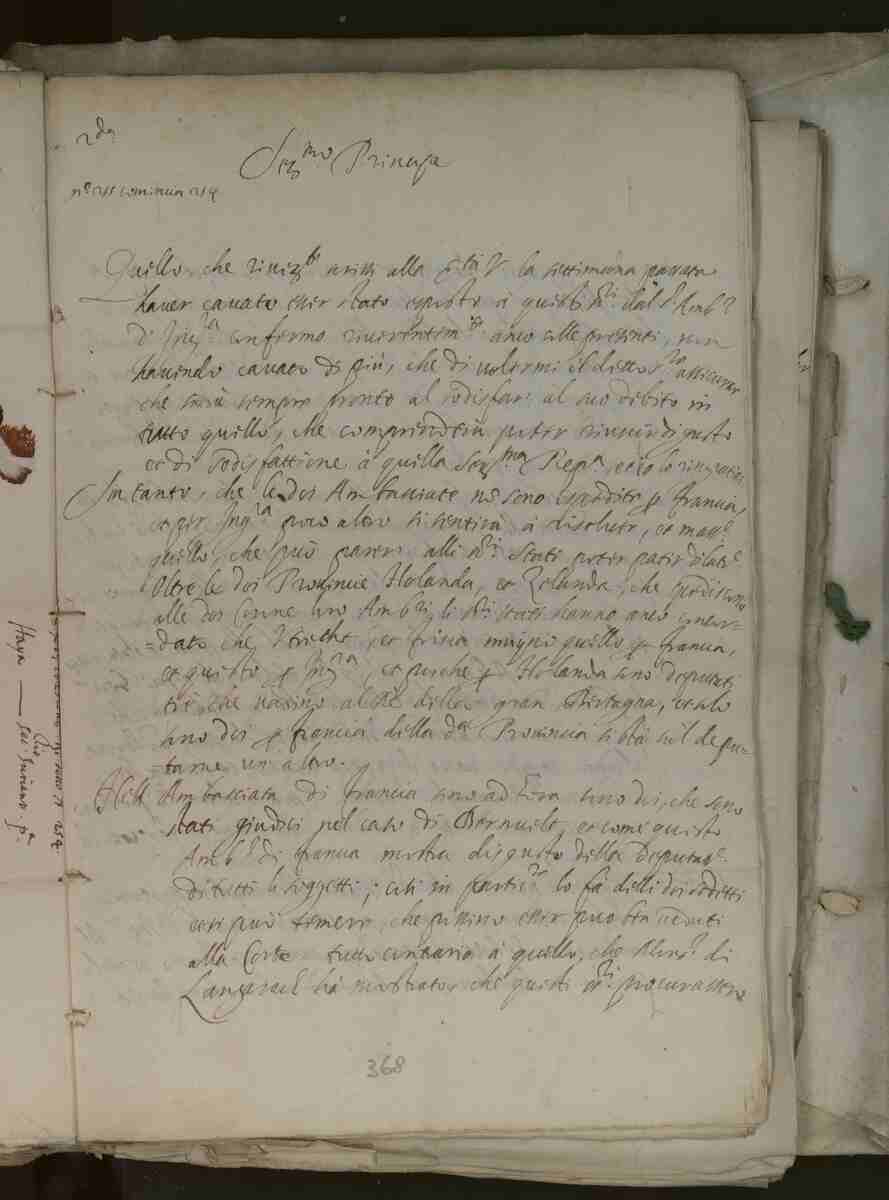 2da
Sermo Principe
no 255 comincia 254
Quello, che riverte scrissi alla Stà V. la settimana passata
haver cavato esser stato esposto à questi Sri dal Sr Ambr
d'Ingra confermo riverentemte anco colle presenti, non
havendo cavato di più, che di volermi il detto Sre assicurar
che sarà sempre pronto al sodisfar al suo debito in
tutto quello, che comprenderà poter riuscir di gusto
et di sodisfattione à quella Serma Repca, et io lo ringratiai
In tanto, che le doi Ambasciate no sono espedite per Francia,
et per Ingra poco altro si sentirà à risolver, et mass.
quello, che può parer alli Sri Stati poter patir dilatne
Oltre le doi Provincie Holanda, et Zelanda, che spediscono
alle doi Corone loro Ambri, li Sri Stati hanno anco
-dato che Utrecht, et Frisia mandino quello per Francia,
et questo per Ingra, et perche per Holanda sono deputati
tre, che vadino al Re della gran Bertagna, et solo
sono doi per Francia della da Provincia si stà sul depu-
-tarne un altro.
Nell Ambasciata di Francia sono ad hora sono doi, che sono
stati giudici nel caso di Bernvelt, et come questo
Ambr di Francia mostra disgusto della Deputatne
di tutti li soggetti; così in partice lo fà delli doi sodetti
et si può temere, che possino esser poco ben veduti
alla Corte tutto contrario à quello, che Monsr di
Langarach hà mostrato, che questi Sri procurassero
368
Haya
Sec. Suriano